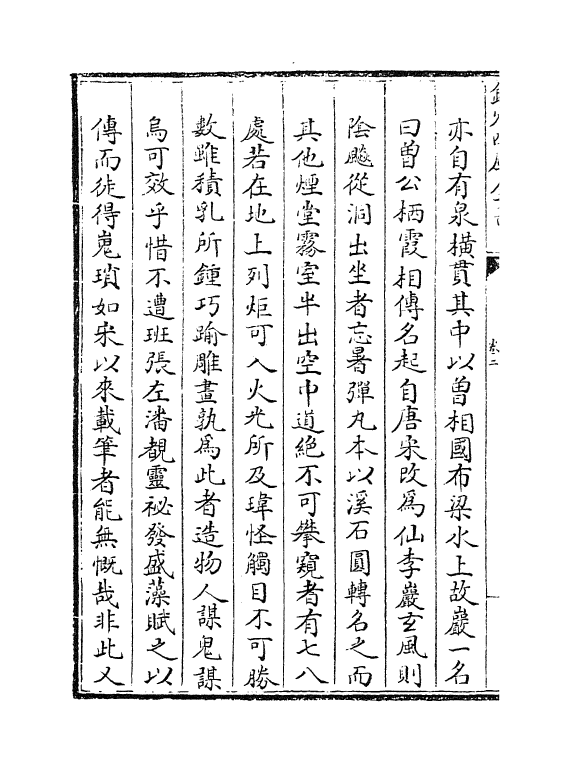 亦自有泉橫貫其中以曽相國布梁水上故巖一名
曰曽公栖霞相傳名起自唐宋改為仙李巖玄風則
陰颷從洞出坐者忘暑彈丸本以溪石圓轉名之而
其他煙堂霧室半出空中道絶不可攀窺者有七八
處若在地上列炬可入火光所及瑋怪觸目不可勝
數雖積乳所鍾巧踰雕畫孰為此者造物人謀鬼謀
烏可效乎惜不遭班張左潘覩靈祕發盛藻賦之以
傳而徒得嵬瑣如宋以來載筆者能無慨哉非此又
卷二